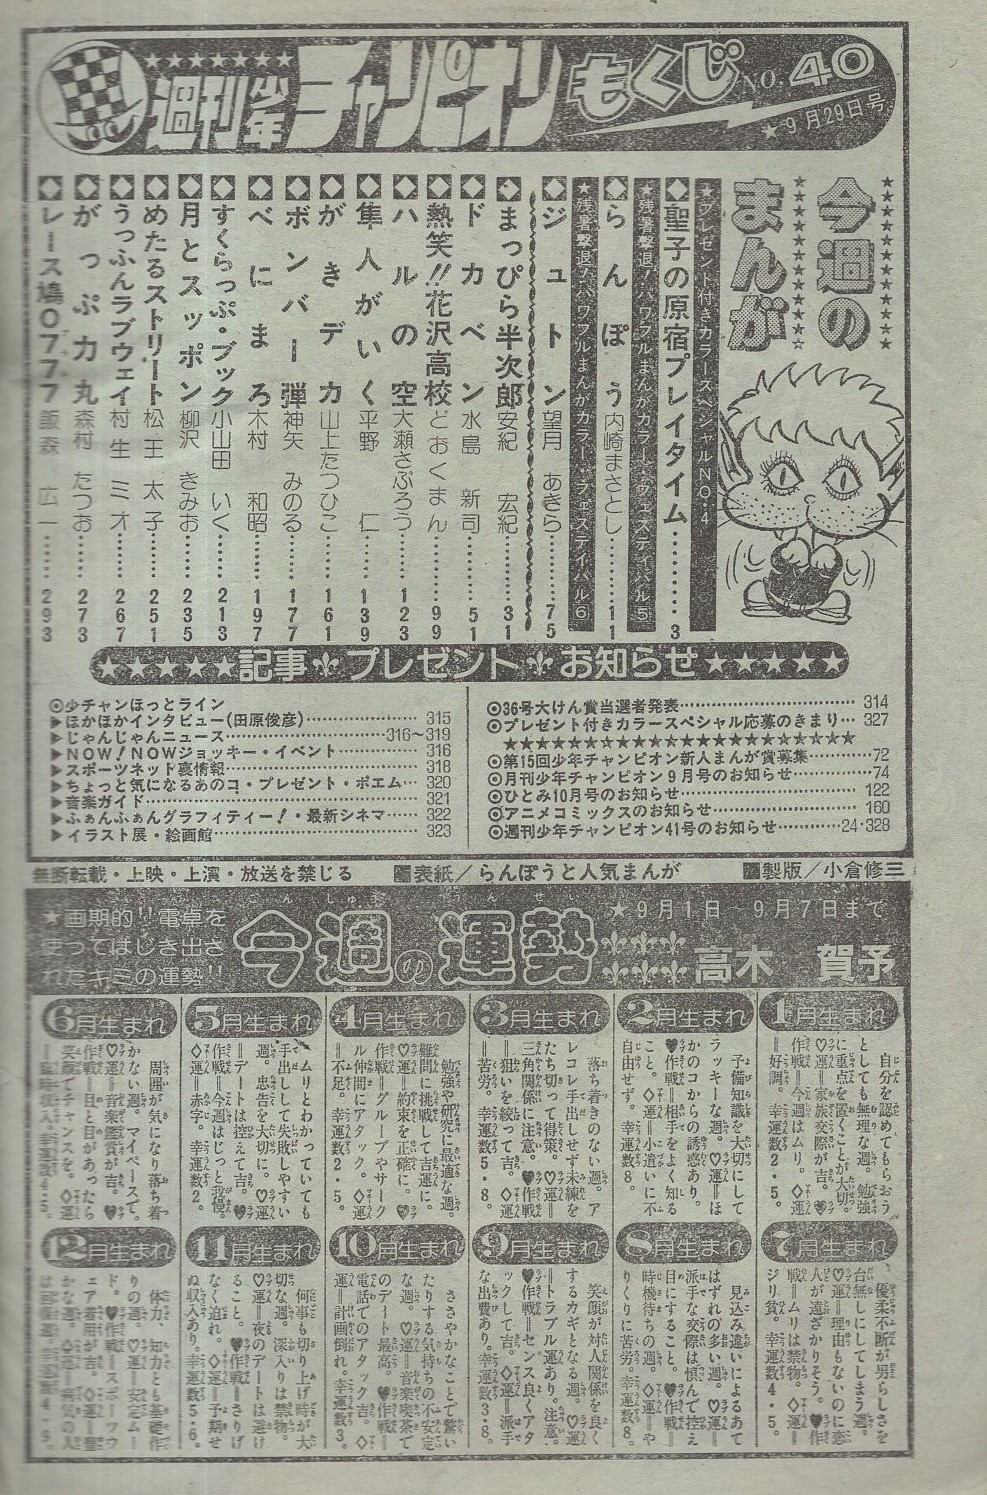 週刊少年チャンピオン もくじ NO.40
★9月29日号
今週のまんが
★プレゼント付きカラースペシャルNO.4
聖子の原宿プレイタイム………3
★残暑撃退!パワフルまんがカラーフェスティバル5
らんぽう 内崎まさとし……11
★残暑撃退!パワフルまんがカラーフェスティバル6
ジュトン 望月あきら……75
まっぴら半次郎 安紀宏紀……31
ドカベン 水島新司……51
熱笑!!花沢高校 どおくまん……99
ハルの空 大瀬さぶろう……123
隼人がいく 平野仁……139
がきデカ 山上たつひこ……161
ボンバー弾 神矢みのる……177
べにまろ 木村和昭……197
すくらっぷ・ブック 小山田いく……213
月とスッポン 柳沢きみお……235
めたるストリート 松王太子……251
うっふんラブウェイ 村生ミオ……267
がっぷ力丸 森村たつお……273
レース鳩0777 飯森広一……293
★★★★★記事 プレゼント お知らせ★★★★★
◎少チャンほっとライン
▶ほかほかインタビュー(田原俊彦)……315
▶じゃんじゃんニュース……316〜319
▶NOW!NOWジョッキー・イベント……316
▶スポーツネット裏情報……318
▶ちょっと気になるあのコ・プレゼント・ポエム……320
▶音楽ガイド……321
▶ふぁんふぁんグラフィティー!・最新シネマ……322
▶イラスト展・絵画館……323
◎36号大けん賞当選者発表……314
◎プレゼント付きカラースペシャル応募のきまり…327
★★★★★★★★★★★★★★★★★★★★
◎第15回少年チャンピオン新人まんが賞募集……72
◎月刊少年チャンピオン9月号のお知らせ……74
◎ひとみ10月号のお知らせ……122
◎アニメコミックスのお知らせ……160
◎週刊少年チャンピオン41号のお知らせ……24・328
無断転載・上映・上演・放送を禁じる
表紙/らんぽうと人気まんが
製版/小倉修三
★画期的!!電卓を
使ってはじき出さ
れたキミの運勢!!
今週の運勢
こんしゅう うんせい
★9月1日〜9月7日まで
高木 賀予
1月生まれ
自分を認めてもらおう
としても無理な週。勉強
に重点を置くことが大切。
♡運=家族交際が吉。♥
作戦=今週はムリ。◇運
=好調。幸運数2・5。
2月生まれ
予備知識を大切にして
ラッキーな週。♡運=ほ
かのコからの誘惑あり。
♥作戦=相手をよく知る
こと。◇運=小遣いに不
自由せず。幸運数8。
3月生まれ
落ち着きのない週。ア
レコレ手出しせず未練を
たち切って得策。♡運=
三角関係に注意。♥作戦
=狙いを絞って吉。◇運
=苦労。幸運数5・8。
4月生まれ
勉強や研究に最適な週。
難問に挑戦して吉運に。
♡運=約束を正確に。♥
作戦=グループやサーク
ル仲間にアタック。◇運
=不足。幸運数2・5。
5月生まれ
ムリとわかっていても
手出しして失敗しやすい
週。忠告を大切に。♡運
=デートは控えて吉。♥
作戦=今週はじっと我慢。
◇運=赤字。幸運数2。
6月生まれ
周囲が気になり落ち着
かない週。マイペースで。
♡運=音楽鑑賞が吉。♥
作戦=目と目があったら
笑顔でチャンスを。◇運
=臨時収入。幸運数4・5。
7月生まれ
優柔不断が男らしさを
台無しにしてしまう週。
♡運=理由もないのに恋
人が遠ざかりそう。♥作
戦=ムリは禁物。◇運=
ジリ貧。幸運数4・5。
8月生まれ
見込み違いによるあて
はずれの多い週。♡運=
派手な交際は慎んで控え
目にすること。♥作戦=
時機待ちの週。◇運=や
りくりに苦労。幸運数8。
9月生まれ
笑顔が対人関係を良く
するカギとなる週。♡運
=トラブル運あり。注意。
♥作戦=センス良くアタ
ックして吉。◇運=派手
な出費あり。幸運数3・8。
10月生まれ
ささやかなことで驚い
たりする気持ちの不安定
な週。♡運=音楽喫茶で
のデート最高。♥作戦=
電話でのアタック吉。◇
運=計画倒れ。幸運数3。
11月生まれ
何事も切り上げ時が大
切な週。深入りは禁物。
♡運=夜のデートは避け
ること。♥作戦=さりげ
なく迫れ。◇運=予期せ
ぬ収入あり。幸運数5・6。
12月生まれ
体力、知力とも基礎作
りの週。♡運=安定ムー
ド。♥作戦=スポーツウ
ェア着用が吉。◇運=豊
かな週。